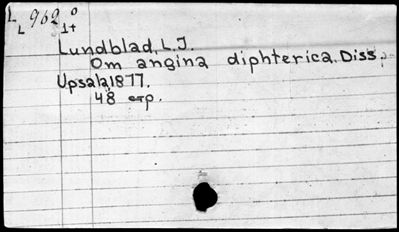 L 962 o
L 1+
Lundblad, L.J.
Om angina diphterica. Diss.
Upsala 1877.
48 p.